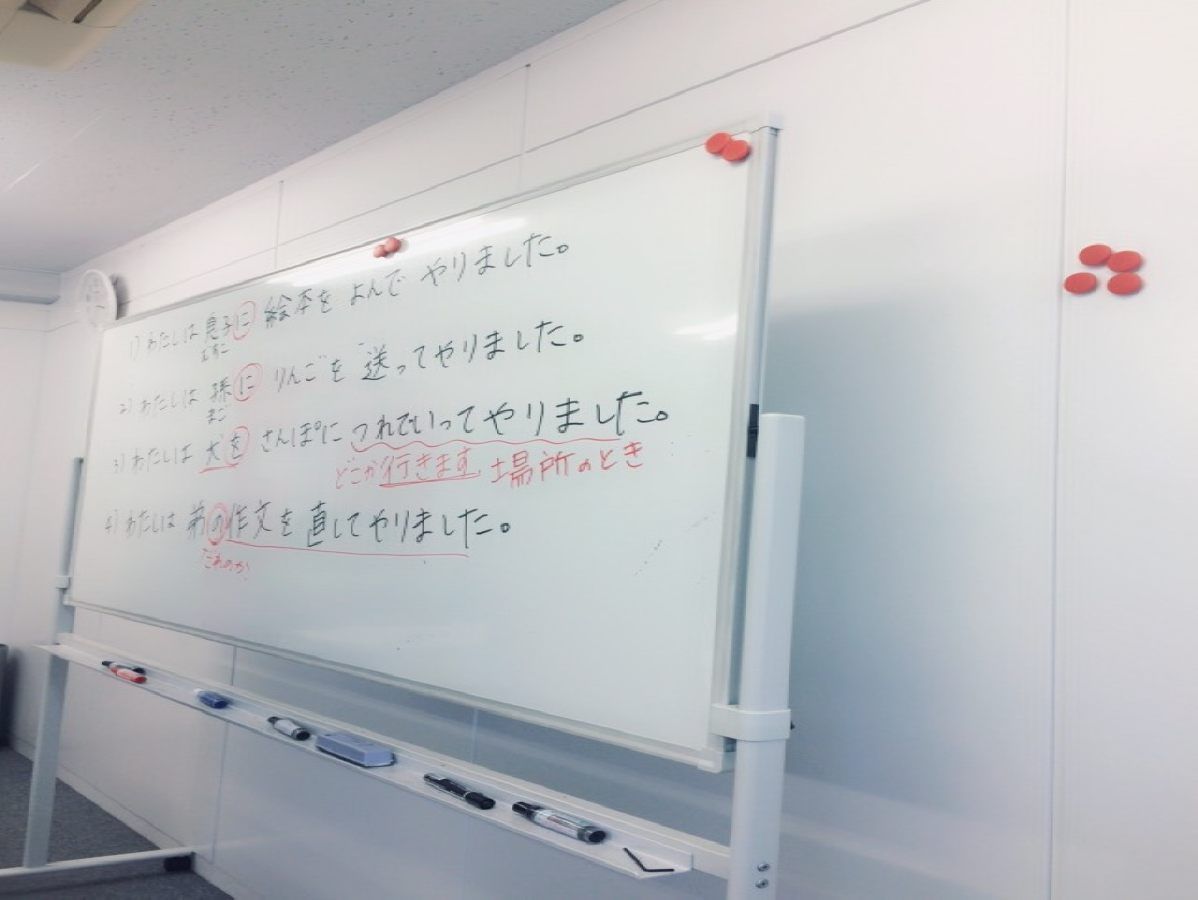 1) わたしは 息子に 絵本を よんで やりました。
むすこ
2) わたしは 孫に りんごを 送ってやりました。
まご
3) わたしは 犬を さんぽに つれていってやりました。
どこか行きます 場所のとき
4) わたしは 弟の作文を 直してやりました。
だれのか